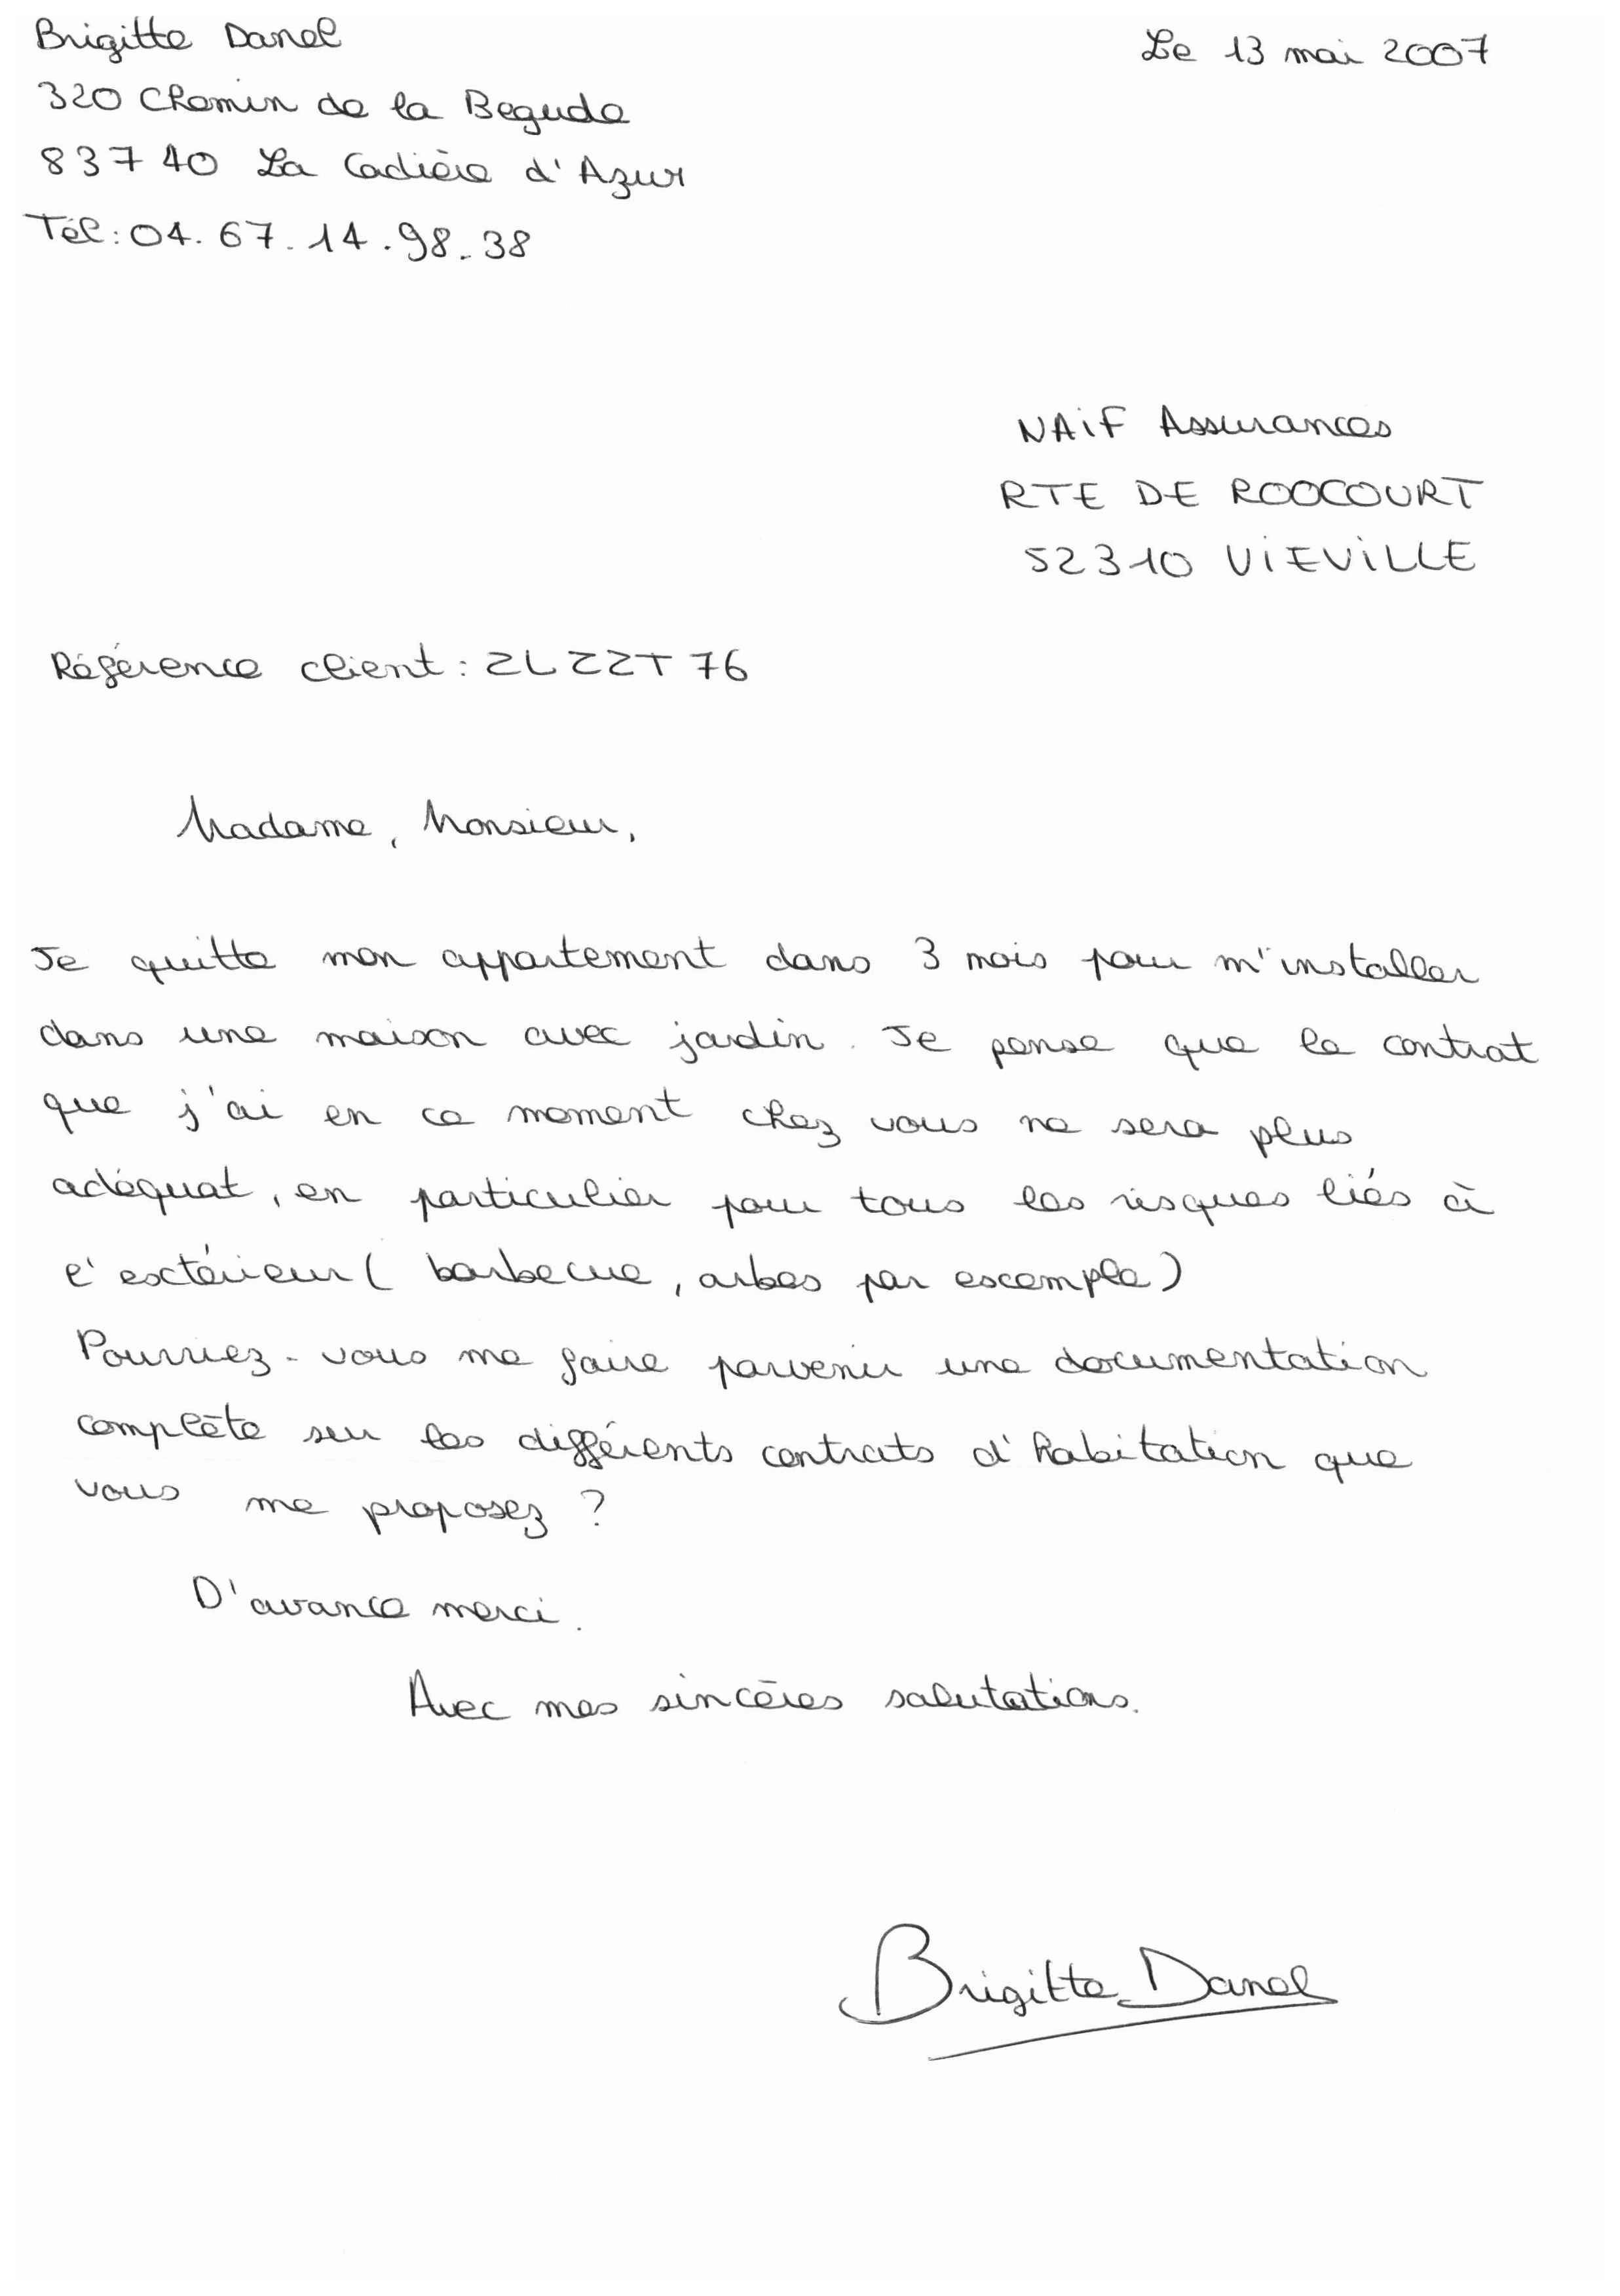 Brigitte Danel
Le 13 mai 2007
320 Chemin de la Begude
83740 La Cadière d'Azur
Tél: 04.67.14.98.38
NAiF Assurances
RTE DE ROOCOURT
52310 ViEViLLE
Référence client: ZLZZT76
Madame, Monsieur,
Je quitte mon appartement dans 3 mois pour m'installer
dans une maison avec jardin. Je pense que le contrat
que j'ai en ce moment chez vous ne sera plus
adéquat, en particulier pour tous les risques liés à
l'extérieur ( barbecue, arbes par exemple)
Pourriez-vous me faire parvenir une documentation
complète sur les différents contrats d'habitation que
vous me proposez ?
D'avance merci.
Avec mes sincères salutations.
Brigitte Danel